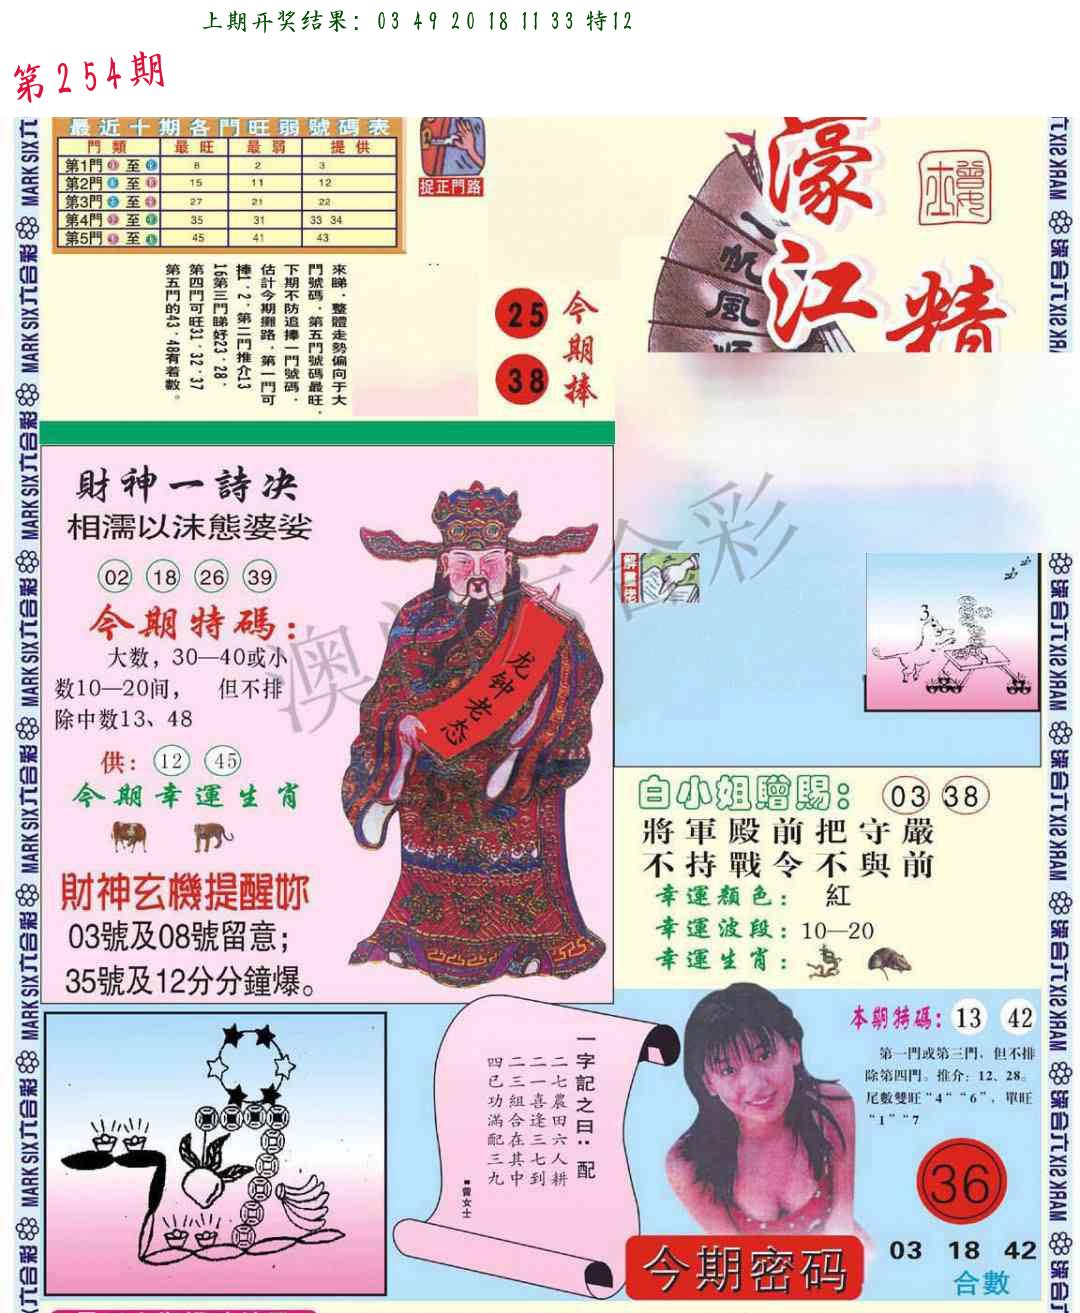 上期开奖结果：03 49 20 18 11 33 特12
第254期
最近十期各門旺弱號碼表
門類 最旺 最弱 提供
第1門 至 8 2 3
第2門 至 15 11 12
第3門 至 27 21 22
第4門 至 35 31 33 34
第5門 至 45 41 43
捉正門路
濠江
精
一帆風順
來睇，整體走勢偏向于大
門號碼，第五門號碼最旺，
下期不防追捧一門號碼，
估計今期攤路，第一門可
捧1．2．第二門推介13
16第三門睇好23．28．
第四門可旺31．32．37
第五門的43．48有着數。
今期捧
25
38
財神一詩决
相濡以沫態婆娑
02 18 26 39
今期特碼：
大数，30—40或小
数10—20间， 但不排
除中数13、48
供：12 45
今期幸運生肖
財神玄機提醒妳
03號及08號留意；
35號及12分分鐘爆。
龙钟老态
澳 六合彩
3
白小姐贈賜：03 38
將軍殿前把守嚴
不持戰令不與前
幸運顏色： 紅
幸運波段：10—20
幸運生肖：
一字記之曰：配
二七農田六人耕
二一喜逢三七到
二三組合在其中
四已功滿配三九
■曾女士
本期特碼：13 42
第一門或第三門，但不排
除第四門。推介：12、28。
尾數雙旺“4”“6”，單旺
“1”“7
36
今期密码
03 18 42
合數
MARK SIX六合彩